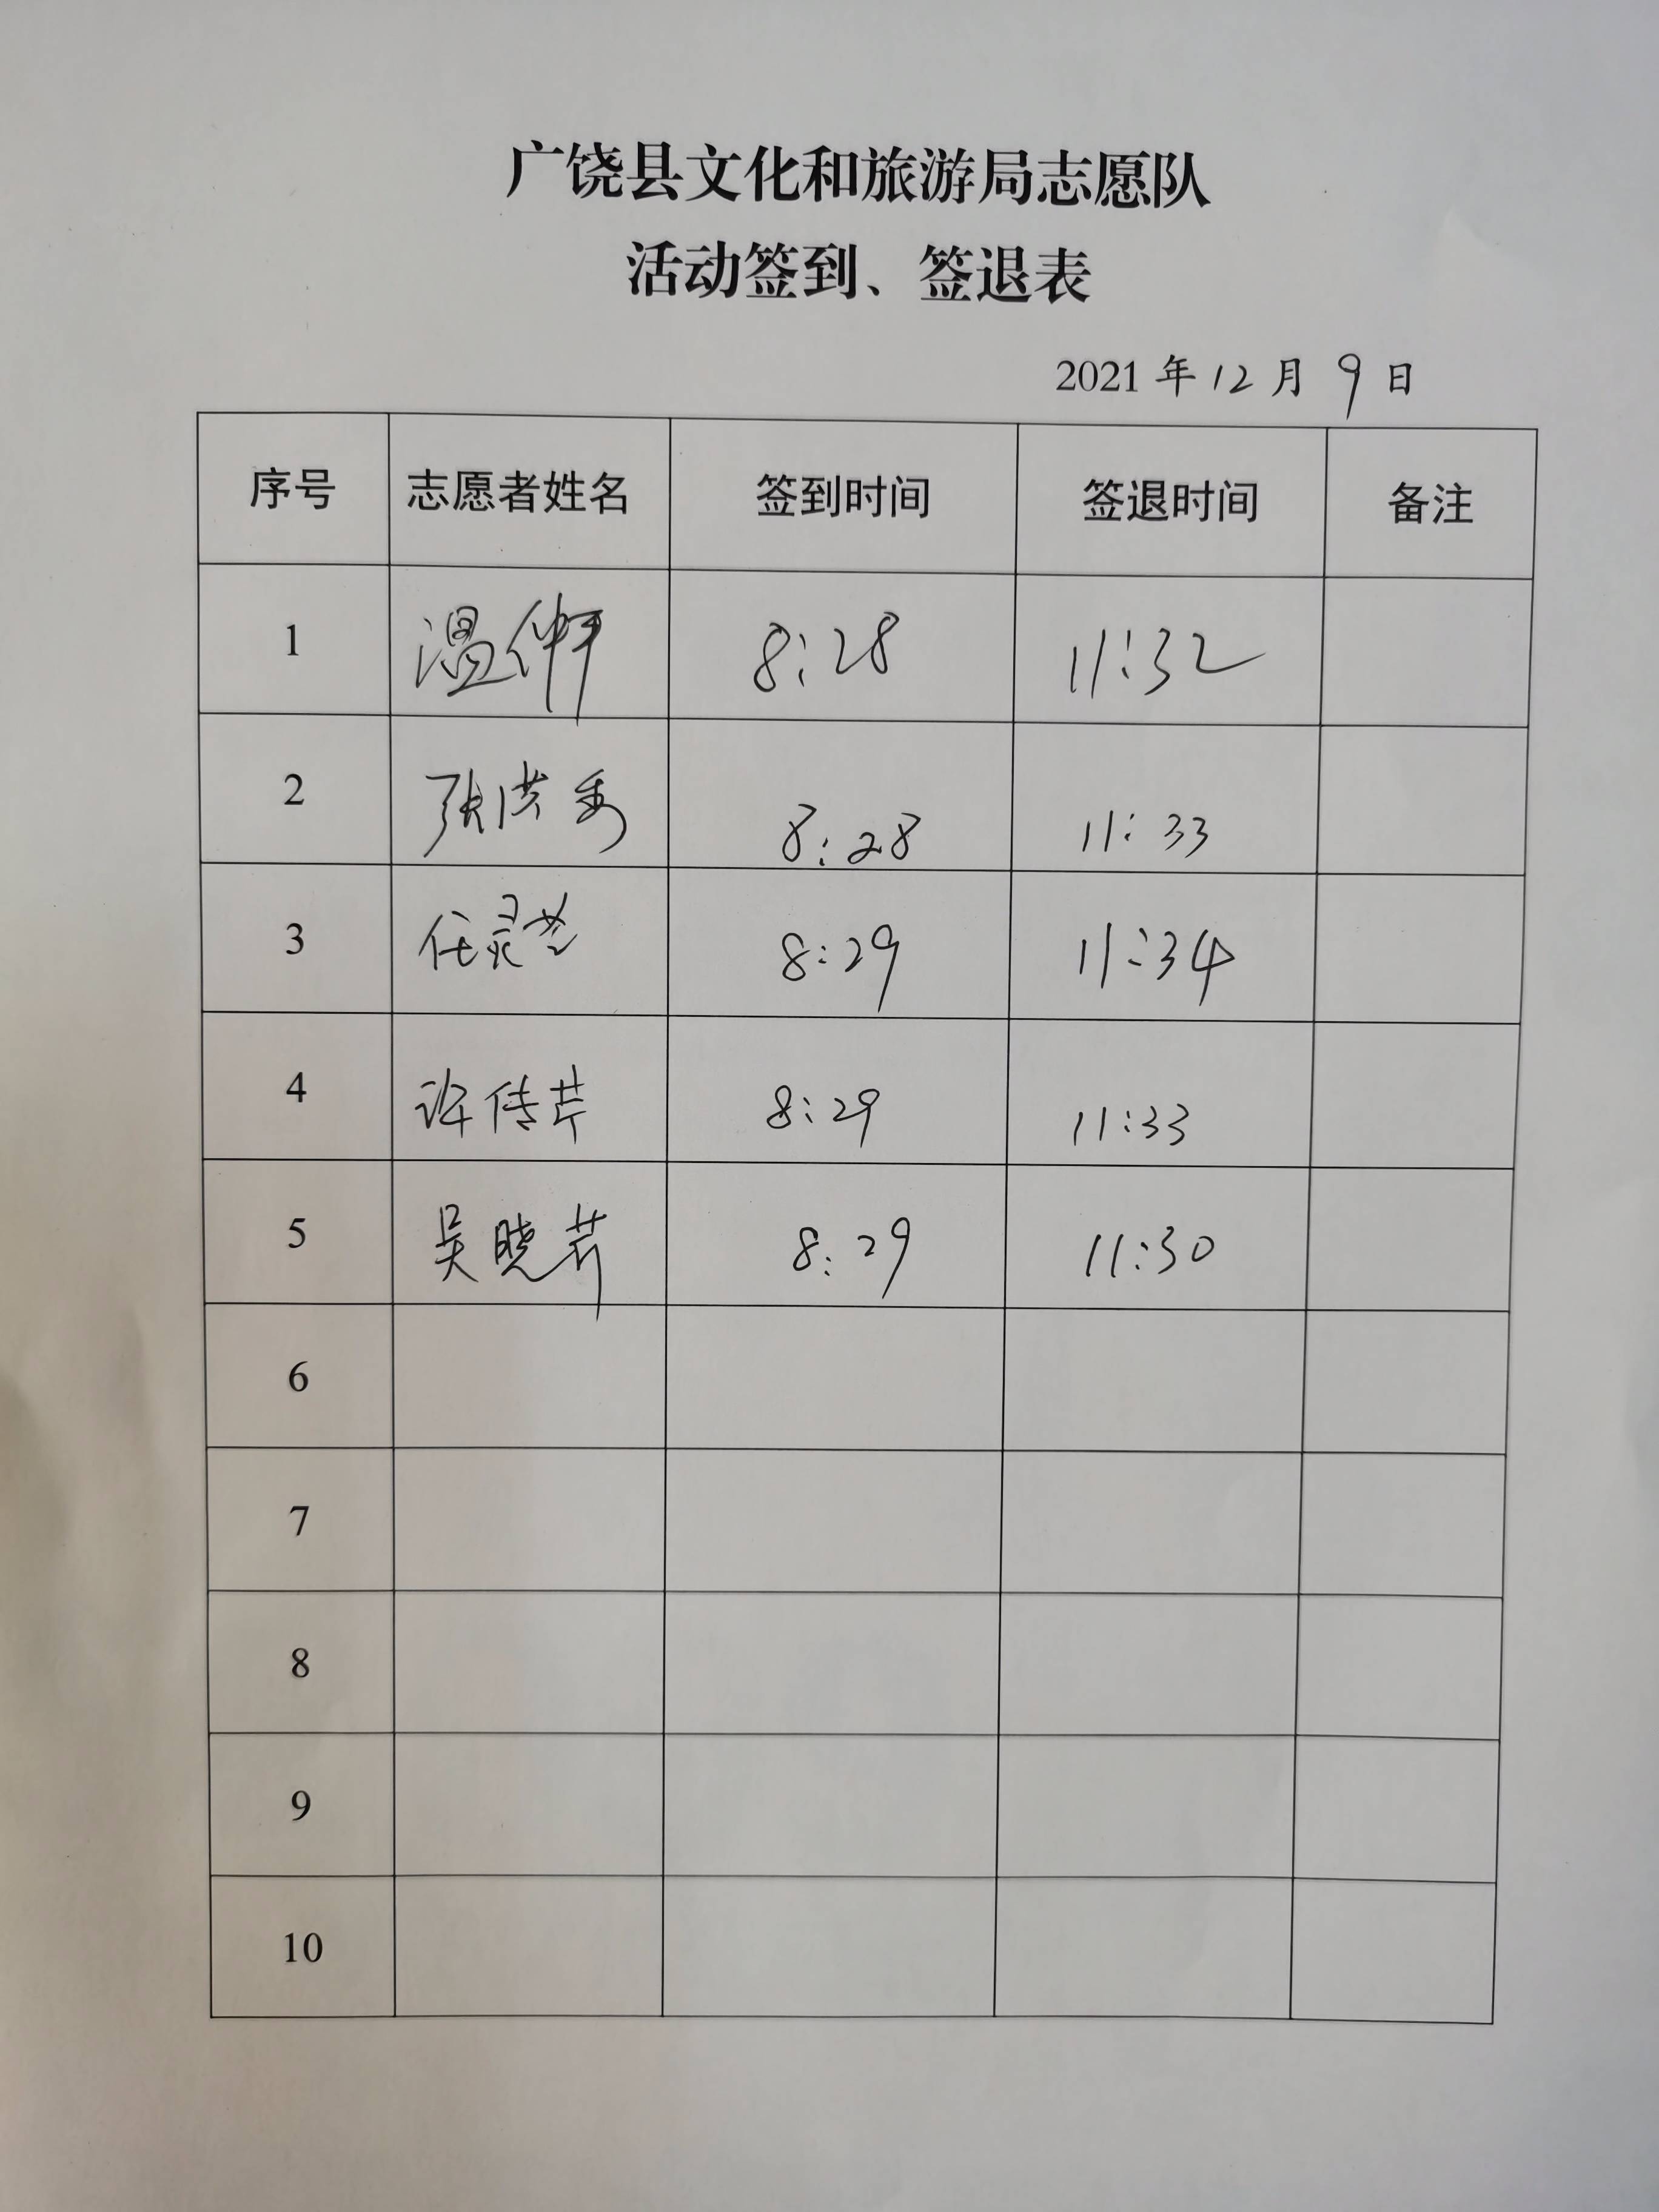 广饶县文化和旅游局志愿队
活动签到、签退表
2021 年 12 月 9 日
序号 志愿者姓名 签到时间 签退时间 备注
1 温 8:28 11:32
2 张洪秀 8:28 11:33
3 任灵芝 8:29 11:34
4 许传芹 8:29 11:33
5 吴晓芹 8:29 11:30
6
7
8
9
10